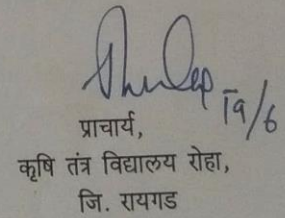 19/6
प्राचार्य,
कृषि तंत्र विद्यालय रोहा,
जि. रायगड